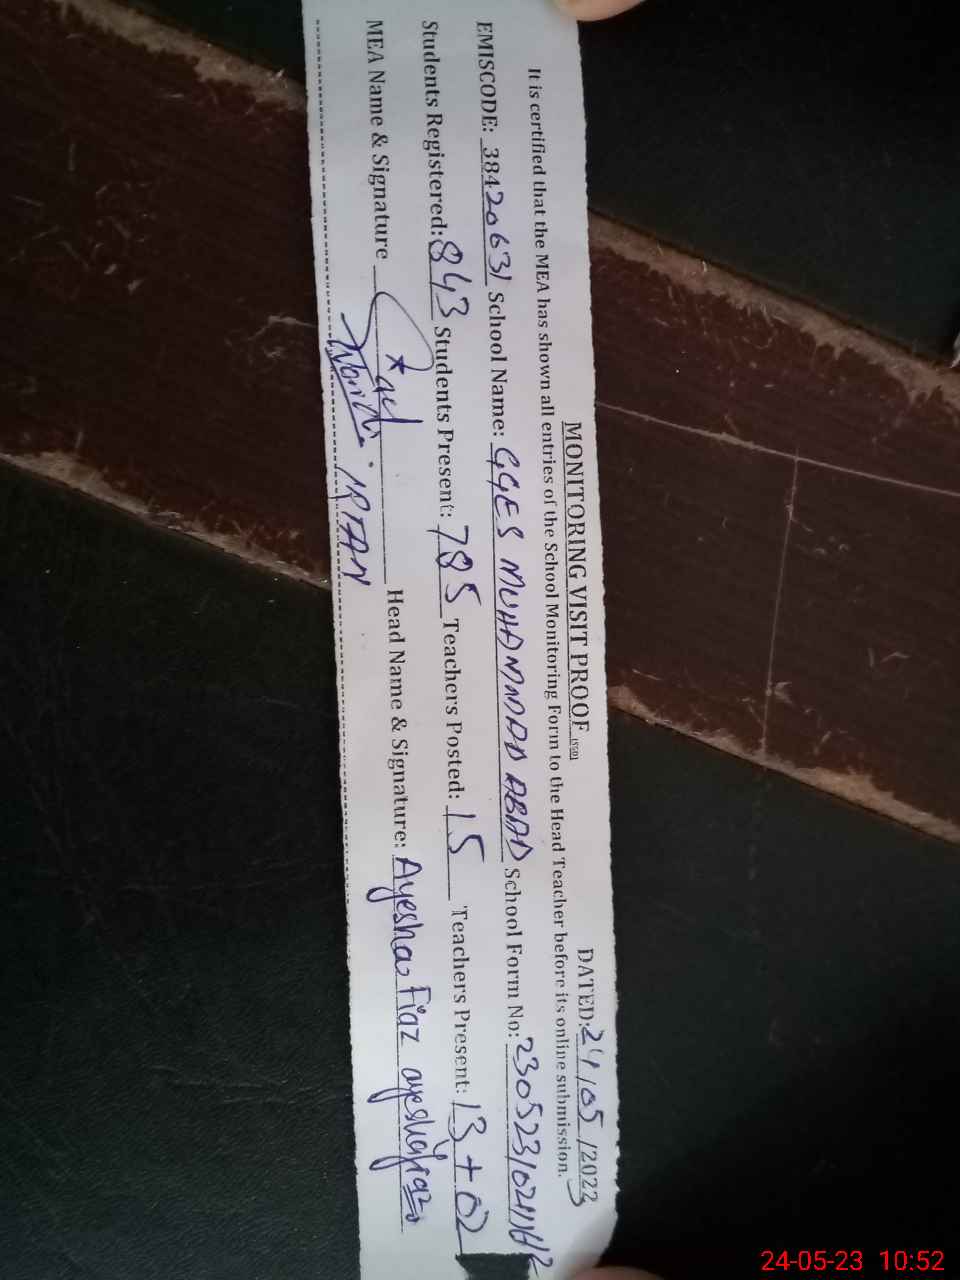 MONITORING VISIT PROOF (SSD) DATED: 24/05/2023
It is certified that the MEA has shown all entries of the School Monitoring Form to the Head Teacher before its online submission.
EMISCODE: 38420631 School Name: GGES MUHAMMAD ABAD School Form No:
Students Registered: 843 Students Present: 785 Teachers Posted: 15 Teachers Present: 13+02
MEA Name & Signature Head Name & Signature: Ayesha Fiaz ayeshafiaz
IRFAN
24-05-23 10:52